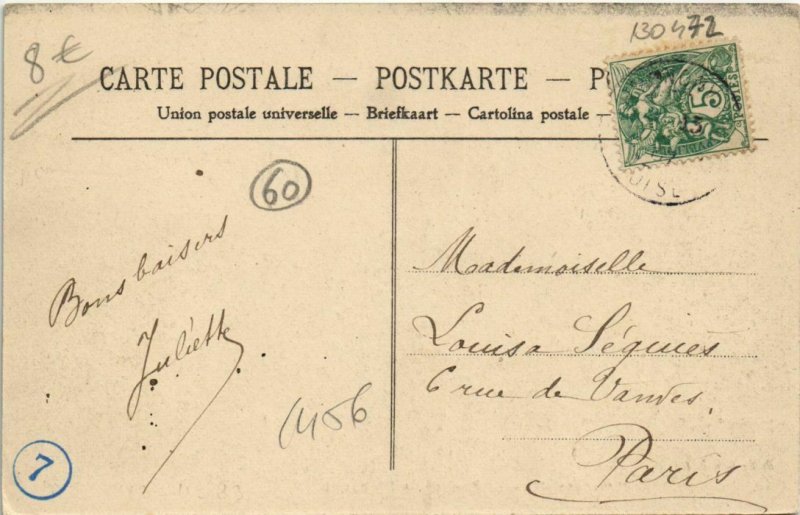 130472
8 €
CARTE POSTALE — POSTKARTE — P
Union postale universelle — Briefkaart — Cartolina postale —
5
OISE
60
Bons baisers
Juliette
Mademoiselle
Louisa Séguies
6 rue de Vanves.
Paris
1156
7